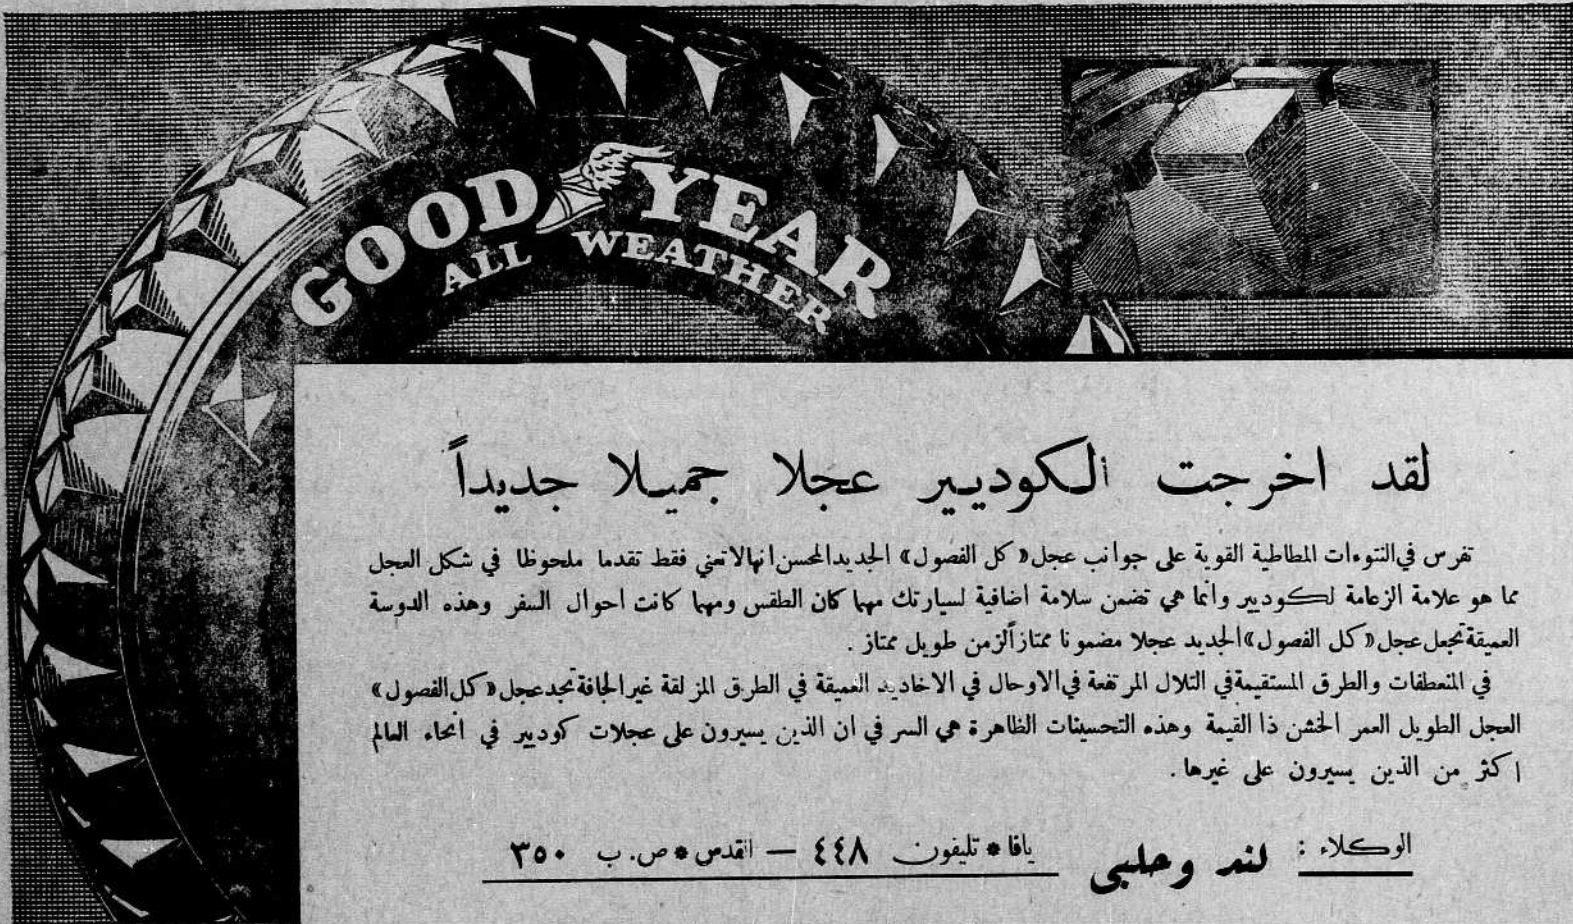 GOOD YEAR
ALL WEATHER
لقد اخرجت الكوديير عجلا جميلا جديداً
تفرس في النتوءات المطاطية القوية على جوانب عجل «كل الفصول» الجديد المحسن انها لا تعني فقط تقدما ملحوظا في شكل العجل
مما هو علامة الزعامة لكوديير وانما هي تضمن سلامة اضافية لسيارتك مهما كان الطقس ومهما كانت احوال السفر وهذه الدوسة
العميقة تجعل عجل «كل الفصول» الجديد عجلا مضمونا ممتازاً لزمن طويل ممتاز .
في المنعطفات والطرق المستقيمة في التلال المرتفعة في الاوحال في الاخاديد العميقة في الطرق المزلقة غير الجافة تجد عجل «كل الفصول»
العجل الطويل العمر الخشن ذا القيمة وهذه التحسينات الظاهرة هي السر في ان الذين يسيرون على عجلات كوديير في انحاء العالم
اكثر من الذين يسيرون على غيرها .
الوكلاء : لند وحلبي يافا * تليفون ٤٤٨ — القدس * ص. ب ٣٥٠